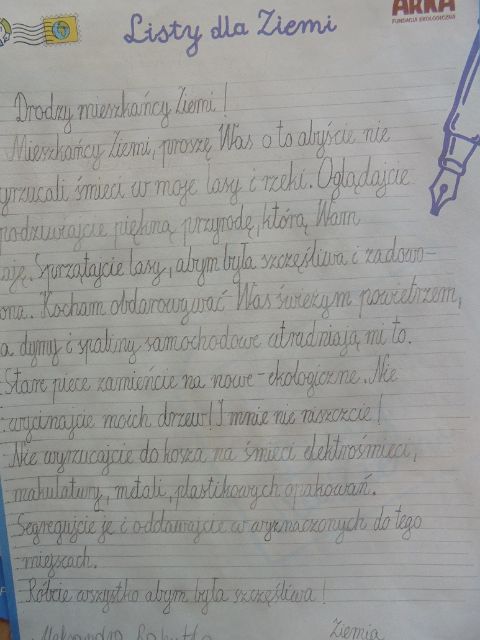 ARKA
FUNDACJA EKOLOGICZNA
Listy dla Ziemi
Drodzy mieszkańcy Ziemi!
Mieszkańcy Ziemi, proszę Was o to abyście nie
yrzucali śmieci w moje lasy i rzeki. Oglądajcie
podziwiajcie piękną przyrodę, którą Wam
aję. Sprzątajcie lasy, abym była szczęśliwa i zadowo-
ona. Kocham obdarowywać Was świeżym powietrzem,
a dymy i spaliny samochodowe utrudniają mi to.
Stare piece zamieńcie na nowe - ekologiczne. Nie
wycinajcie moich drzew! I mnie nie niszczcie!
Nie wyrzucajcie do kosza na śmieci elektrośmieci,
makulatury, metali, plastikowych opakowań.
Segregujcie je i oddawajcie w wyznaczonych do tego
miejscach.
Róbcie wszystko abym była szczęśliwa!
Ziemia
Aleksandra